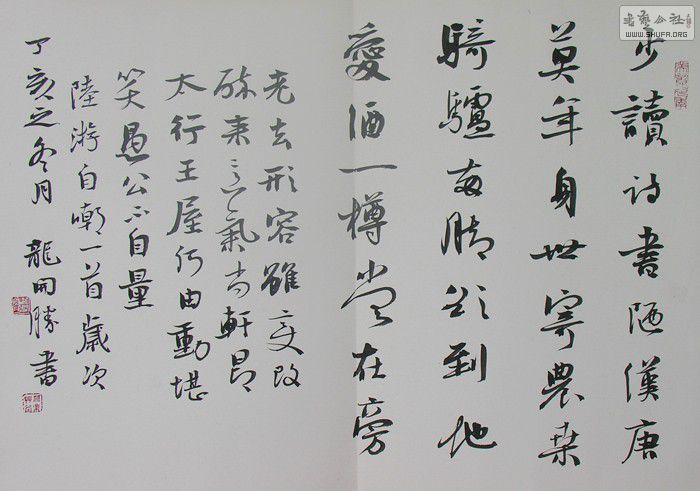 少讀詩書陋漢唐
莫年身世寄農桑
騎驢兩脚欲到地
愛酒一樽常在旁
老去形容雖變改
醉來意氣尚軒昂
太行王屋何由動堪
笑愚公不自量
陸游自嘲一首歲次
丁亥之冬月 龍開勝書
書藝公社
WWW.SHUFA.ORG